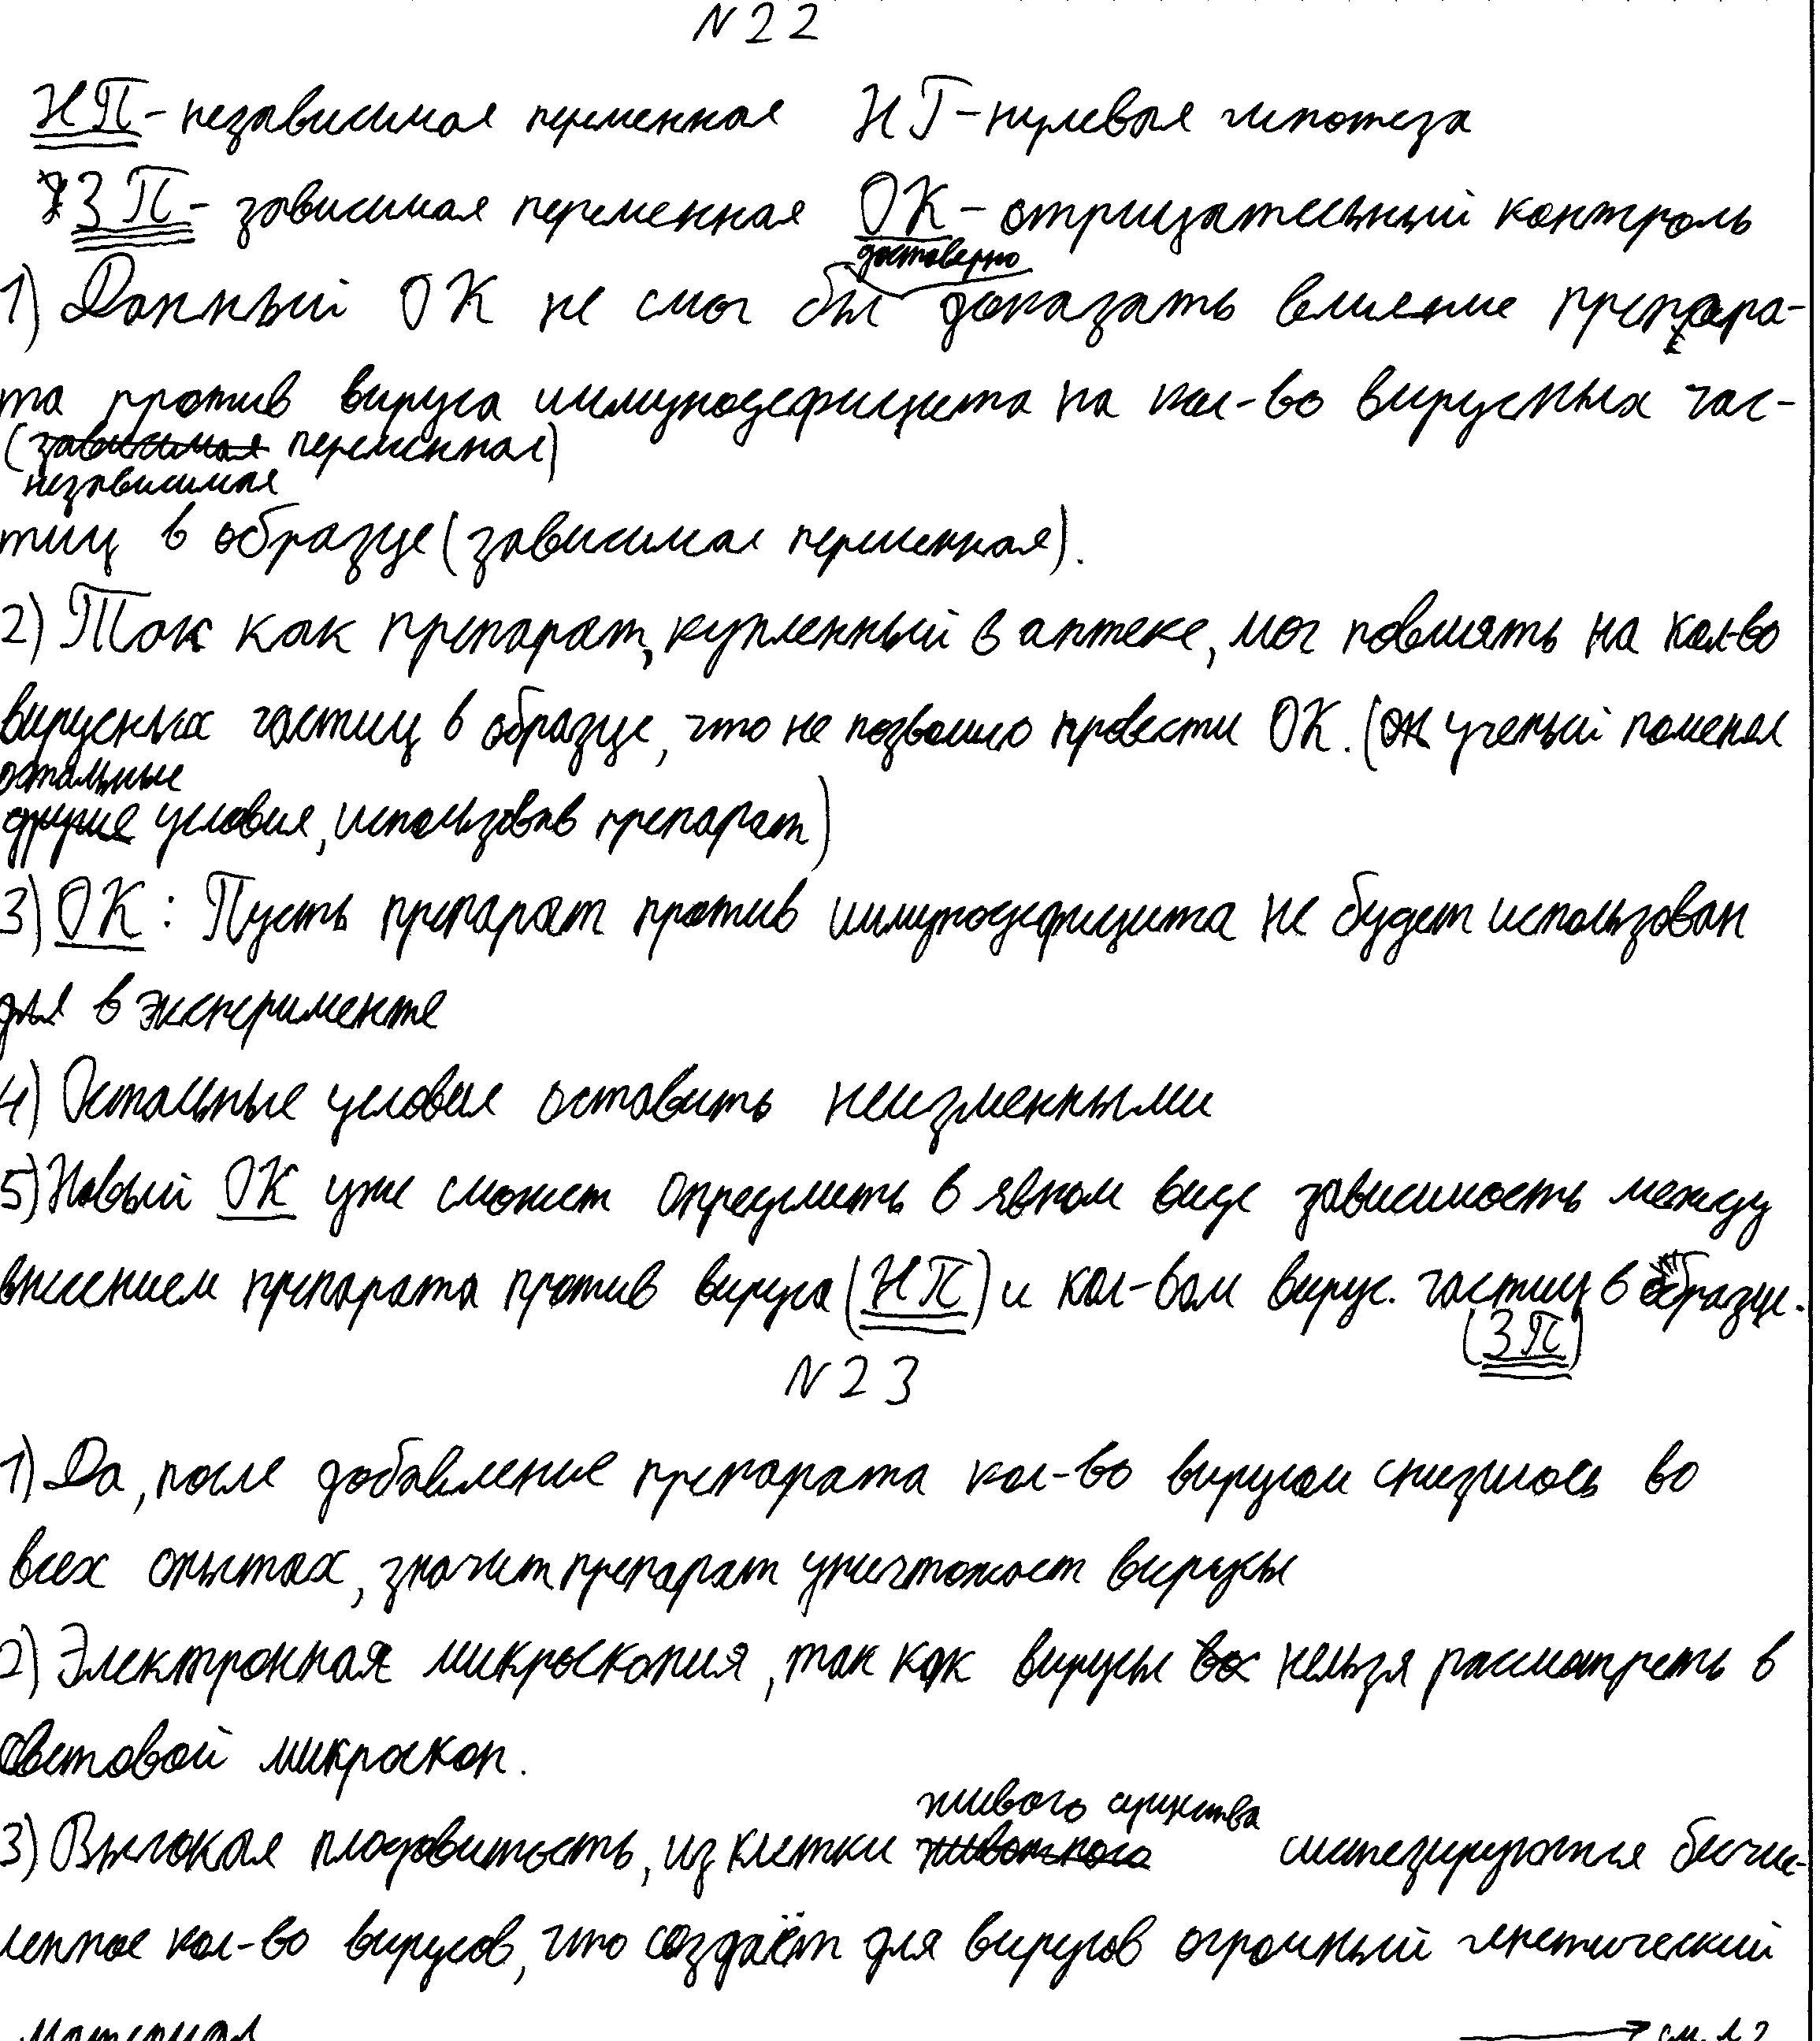 N22
НП - независимая переменная НГ - нулевая гипотеза
ЗП - зависимая переменная ОК - отрицательный контроль
достоверно
1) Данный ОК не смог бы доказать влияние препара-
та против вируса иммунодефицита на кол-во вирусных час-
(зависимая переменная)
независимая
тиц в образце (зависимая переменная).
2) Так как препарат, купленный в аптеке, мог повлиять на кол-во
вирусных частиц в образце, что не позволило провести ОК. (он ученый поменял
остальные
другие условия, использовав препарат)
3) ОК: Пусть препарат против иммунодефицита не будет использован
для в эксперименте
4) Остальные условия оставить неизменными
5) Новый ОК уже сможет определить в явном виде зависимость между
внесением препарата против вируса (НП) и кол-вом вирус. частиц в образце.
(ЗП)
N23
1) Да, после добавление препарата кол-во вирусом снизилось во
всех опытах, значит препарат уничтожает вирусы
2) Электронная микроскопия, так как вирусы нельзя рассмотреть в
световой микроскоп.
живого существа
3) Высокая плодовитость, из клетки животного синтезируются бесчис-
ленное кол-во вирусов, что создаёт для вирусов огромный генетический
материал